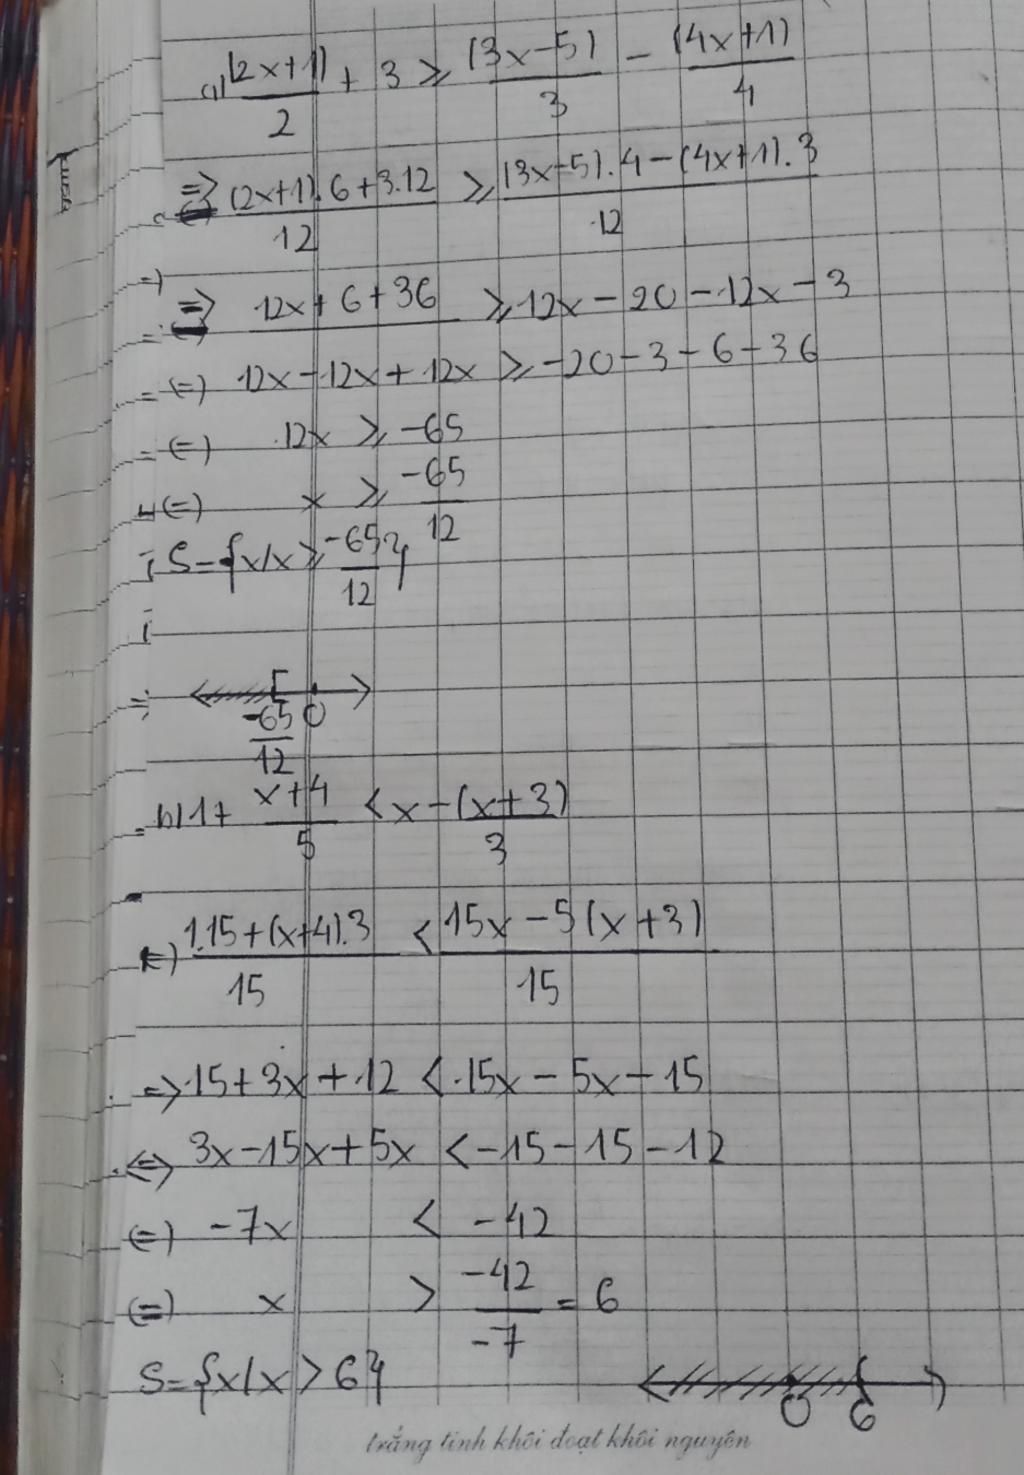 a) (2x+1)/2 + 3 ≥ (3x-5)/3 - (4x+1)/4
=> (2x+1).6+3.12/12 ≥ (3x-5).4-(4x+1).3/12
=> 12x+6+36 ≥ 12x-20-12x-3
(=) 12x-12x+12x ≥ -20-3-6-36
(=) 12x ≥ -65
(=) x ≥ -65/12
S={x/x ≥ -65/12}
-65/12 0
b) 1+ x+4/5 < x-(x+3)/3
(=) 1.15+(x+4).3/15 < 15x-5(x+3)/15
=> 15+3x+12 < 15x-5x-15
<=> 3x-15x+5x < -15-15-12
(=) -7x < -42
(=) x > -42/-7 = 6
S={x/x>6}
0 6
trắng tinh khôi đoạt khôi nguyên